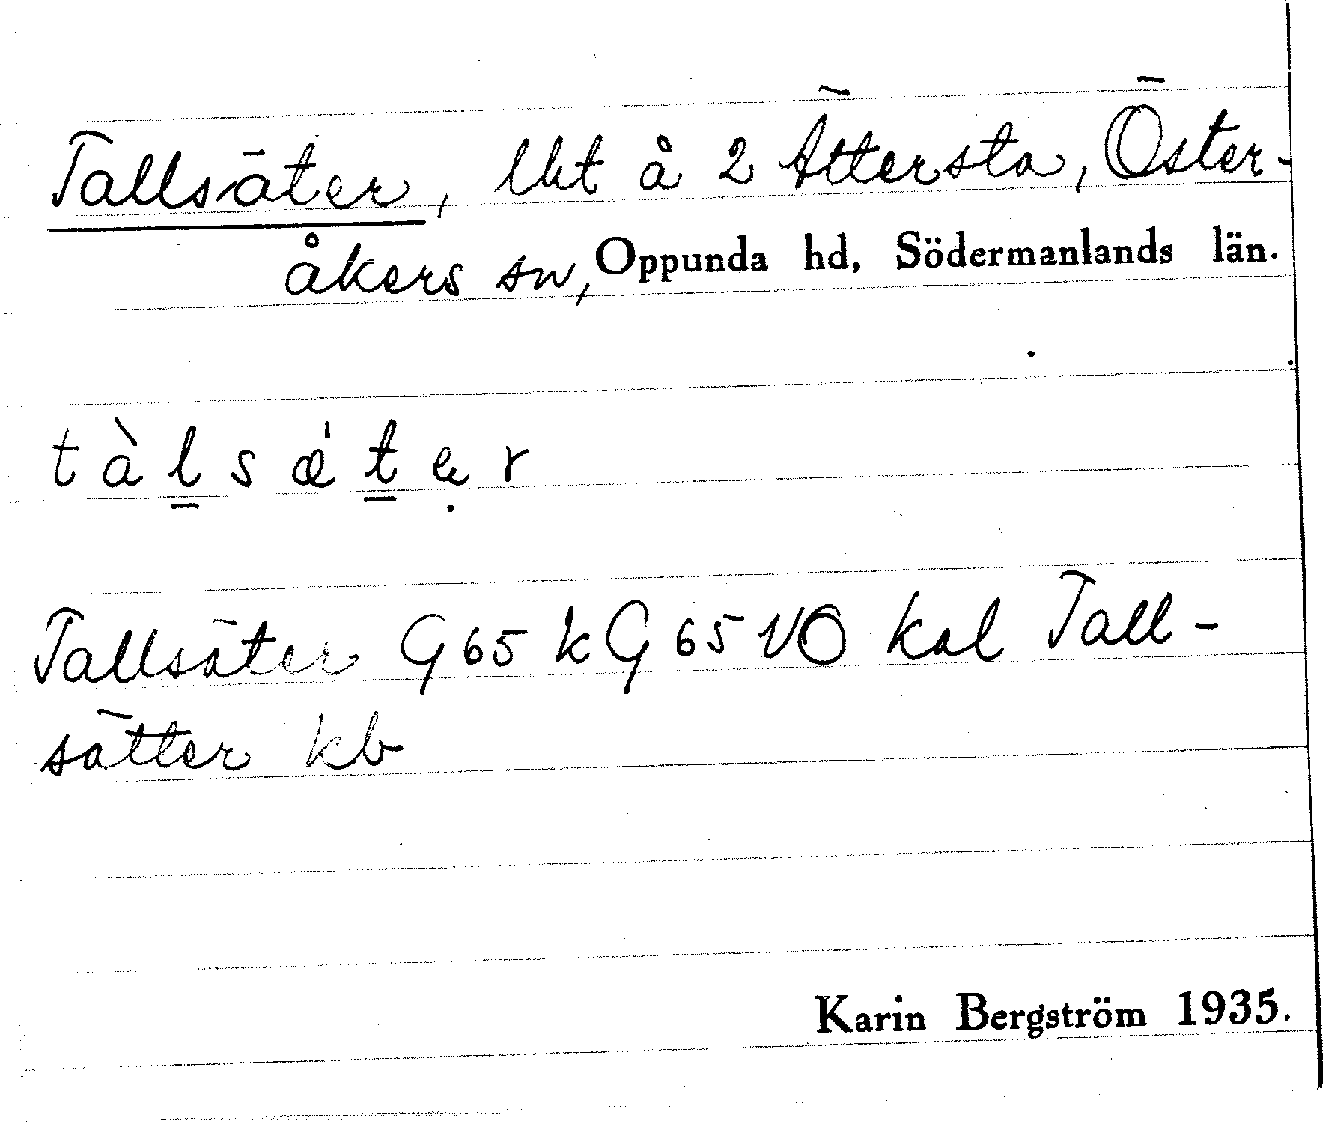 Tallsäter, lht å 2 Ättersta, Öster-
åkers sn, Oppunda hd, Södermanlands län.
tàl̠sǽt̠ẹr
Tallsäter G65 kG65 VO kal Tall-
sätter kb
Karin Bergström 1935.